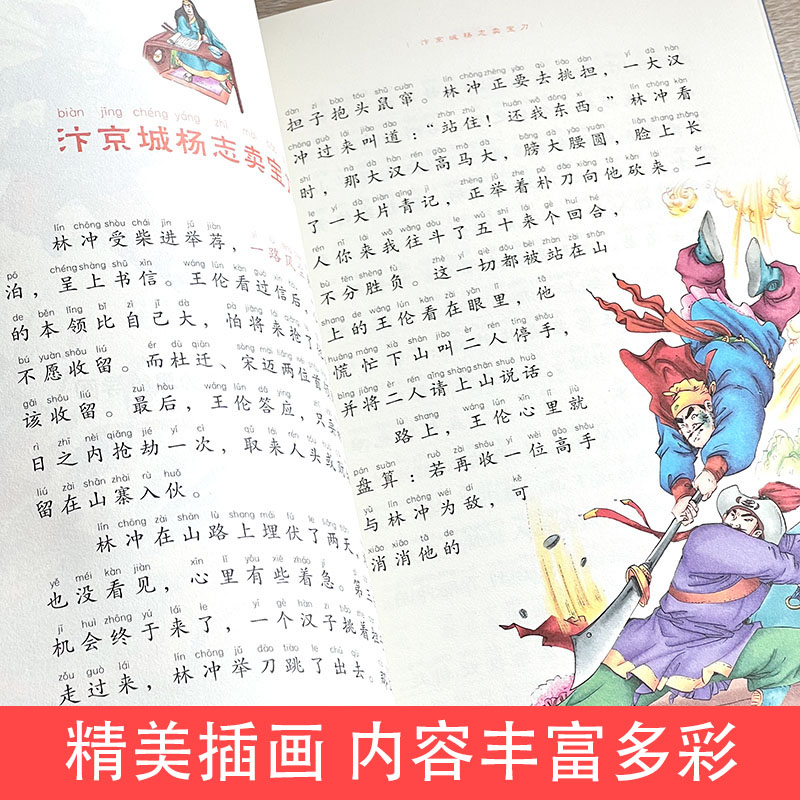 biàn jīng chéng yáng zhì mài
汴京城杨志卖宝
lín chōng shòu chái jìn jǔ jiàn
林冲受柴进举荐，一路风
pō chéng shàng shū xìn wáng lún kàn guò xìn hòu
泊，呈上书信。王伦看过信后
de běn lǐng bǐ zì jǐ dà pà jiāng lái qiǎng le
的本领比自己大，怕将来抢了
bú yuàn shōu liú ér dù qiān sòng mài liǎng wèi shǒu
不愿收留。而杜迁、宋迈两位首
gāi shōu liú zuì hòu wáng lún dā yìng zhǐ
该收留。最后，王伦答应，只要
rì zhī nèi qiǎng jié yí cì qǔ lái rén tóu
日之内抢劫一次，取来人头
liú zài shān zhài rù huǒ
留在山寨入伙。
lín chōng zài shān lù shang mái fú le liǎng tiān
林冲在山路上埋伏了两天，
yě méi kàn jiàn xīn lǐ yǒu xiē zháo jí
也没看见，心里有些着急。第三
jī huì zhōng yú lái le yí gè hàn zi tiāo zhe
机会终于来了，一个汉子挑着担
zǒu guò lái lín chōng jǔ dāo tiào le chū qù
走过来，林冲举刀跳了出去。那
汴京城杨志卖宝刀
dàn zi bào tóu shǔ cuàn lín chōng zhèng yào qù tiāo dàn yí dà hàn
担子抱头鼠窜。林冲正要去挑担，一大汉
chōng guò lái jiào dào zhàn zhù huán wǒ dōng xi lín chōng kàn
冲过来叫道：“站住！还我东西。”林冲看
shí nà dà hàn rén gāo mǎ dà bǎng dà yāo yuán liǎn shàng zhǎng
时，那大汉人高马大，膀大腰圆，脸上长
le yí dà piàn qīng jì zhèng jǔ zhe pō dāo xiàng tā kǎn lái èr
了一大片青记，正举着朴刀向他砍来。二
rén nǐ lái wǒ wǎng dòu le wǔ shí lái gè huí hé
人你来我往斗了五十来个回合，
bù fēn shèng fù zhè yí qiè dōu bèi zhàn zài shān
不分胜负。这一切都被站在山
shàng de wáng lún kàn zài yǎn lǐ tā
上的王伦看在眼里，他
huāng máng xià shān jiào èr rén tíng shǒu
慌忙下山叫二人停手，
bìng jiāng èr rén qǐng shàng shān shuō huà
并将二人请上山说话。
lù shang wáng lún xīn lǐ jiù
路上，王伦心里就
pán suàn ruò zài shōu yí wèi gāo shǒu
盘算：若再收一位高手
yǔ lín chōng wéi dí kě
与林冲为敌，可
xiāo xiāo tā de
消消他的
精美插画 内容丰富多彩